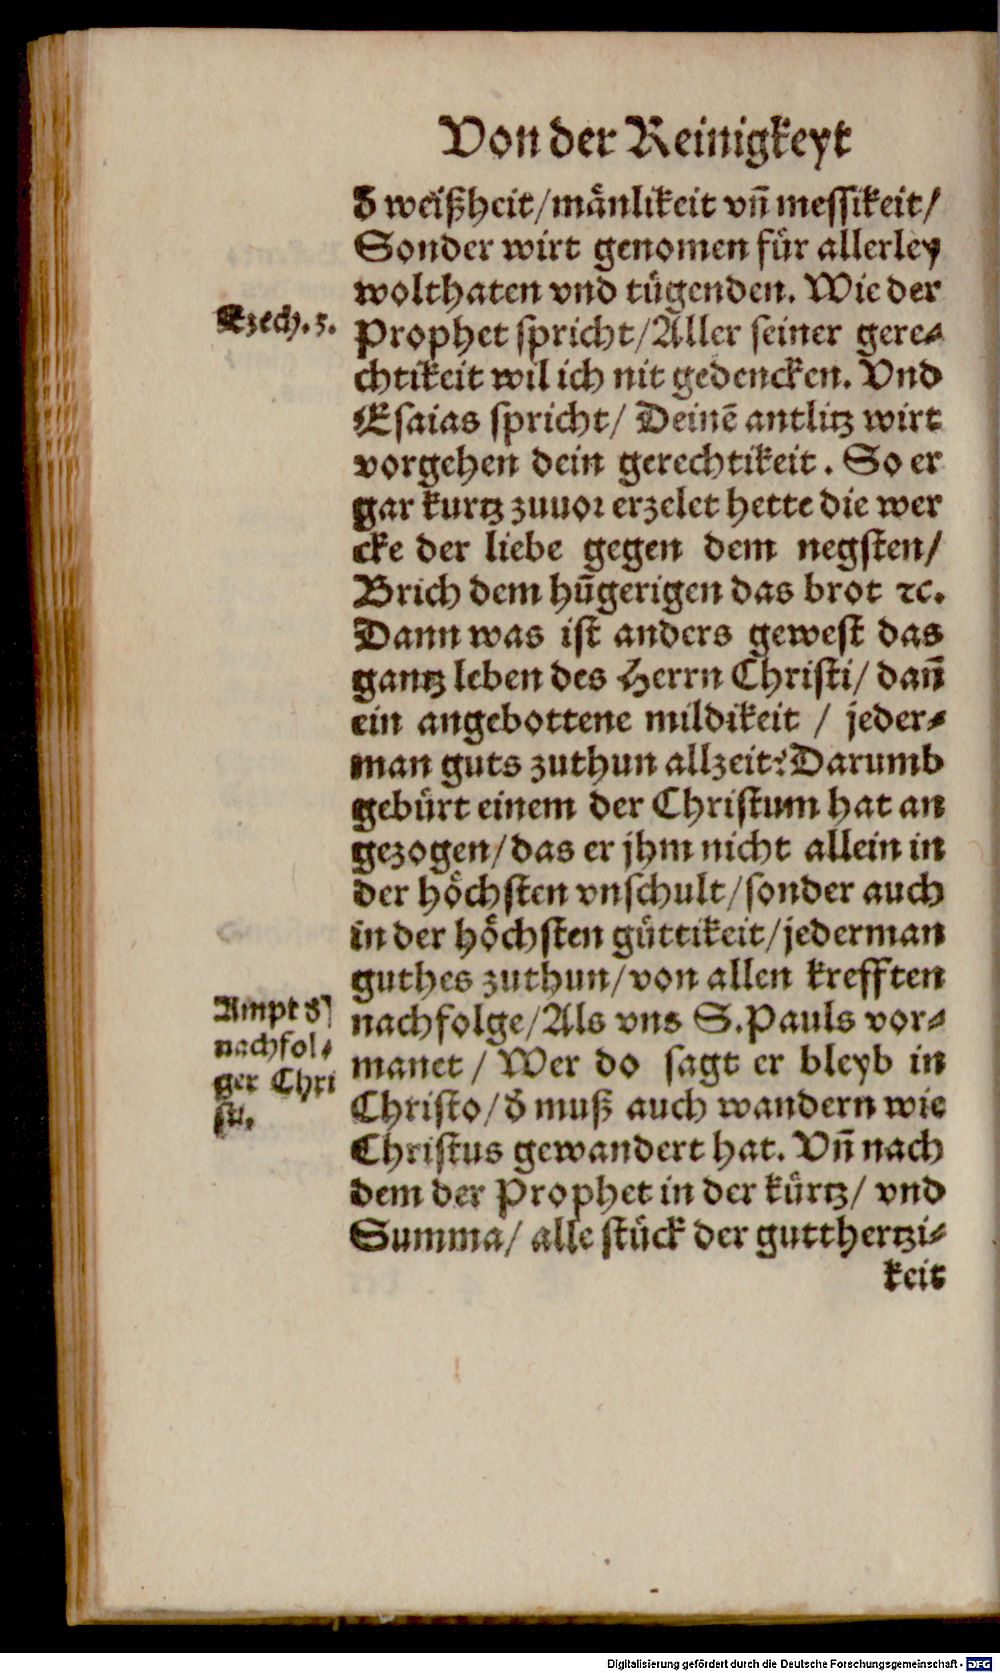 Von der Reinigkeyt
đ weißheit/mänlikeit vñ messikeit/
Sonder wirt genomen für allerley
wolthaten vnd tügenden. Wie der
Ezech. 3.
Prophet spricht/Aller seiner gere-
chtikeit wil ich nit gedencken. Vnd
Esaias spricht/ Deinē antlitz wirt
vorgehen dein gerechtikeit. So er
gar kurtz zuuor erzelet hette die wer
cke der liebe gegen dem negsten/
Brich dem hūgerigen das brot ꝛc.
Dann was ist anders gewest das
gantz leben des Herrn Christi/ dañ
ein angebottene mildikeit / jeder-
man guts zuthun allzeit? Darumb
gebürt einem der Christum hat an
gezogen/das er jhm nicht allein in
der höchsten vnschult/sonder auch
in der höchsten güttikeit/jederman
guthes zuthun/von allen krefften
Ampt đ
nachfol-
ger Chri
sti.
nachfolge/Als vns S.Pauls vor-
manet / Wer do sagt er bleyb in
Christo/đ muß auch wandern wie
Christus gewandert hat. Vñ nach
dem der Prophet in der kürtz/ vnd
Summa/ alle stück der gutthertzi-
keit
Digitalisierung gefördert durch die Deutsche Forschungsgemeinschaft - DFG